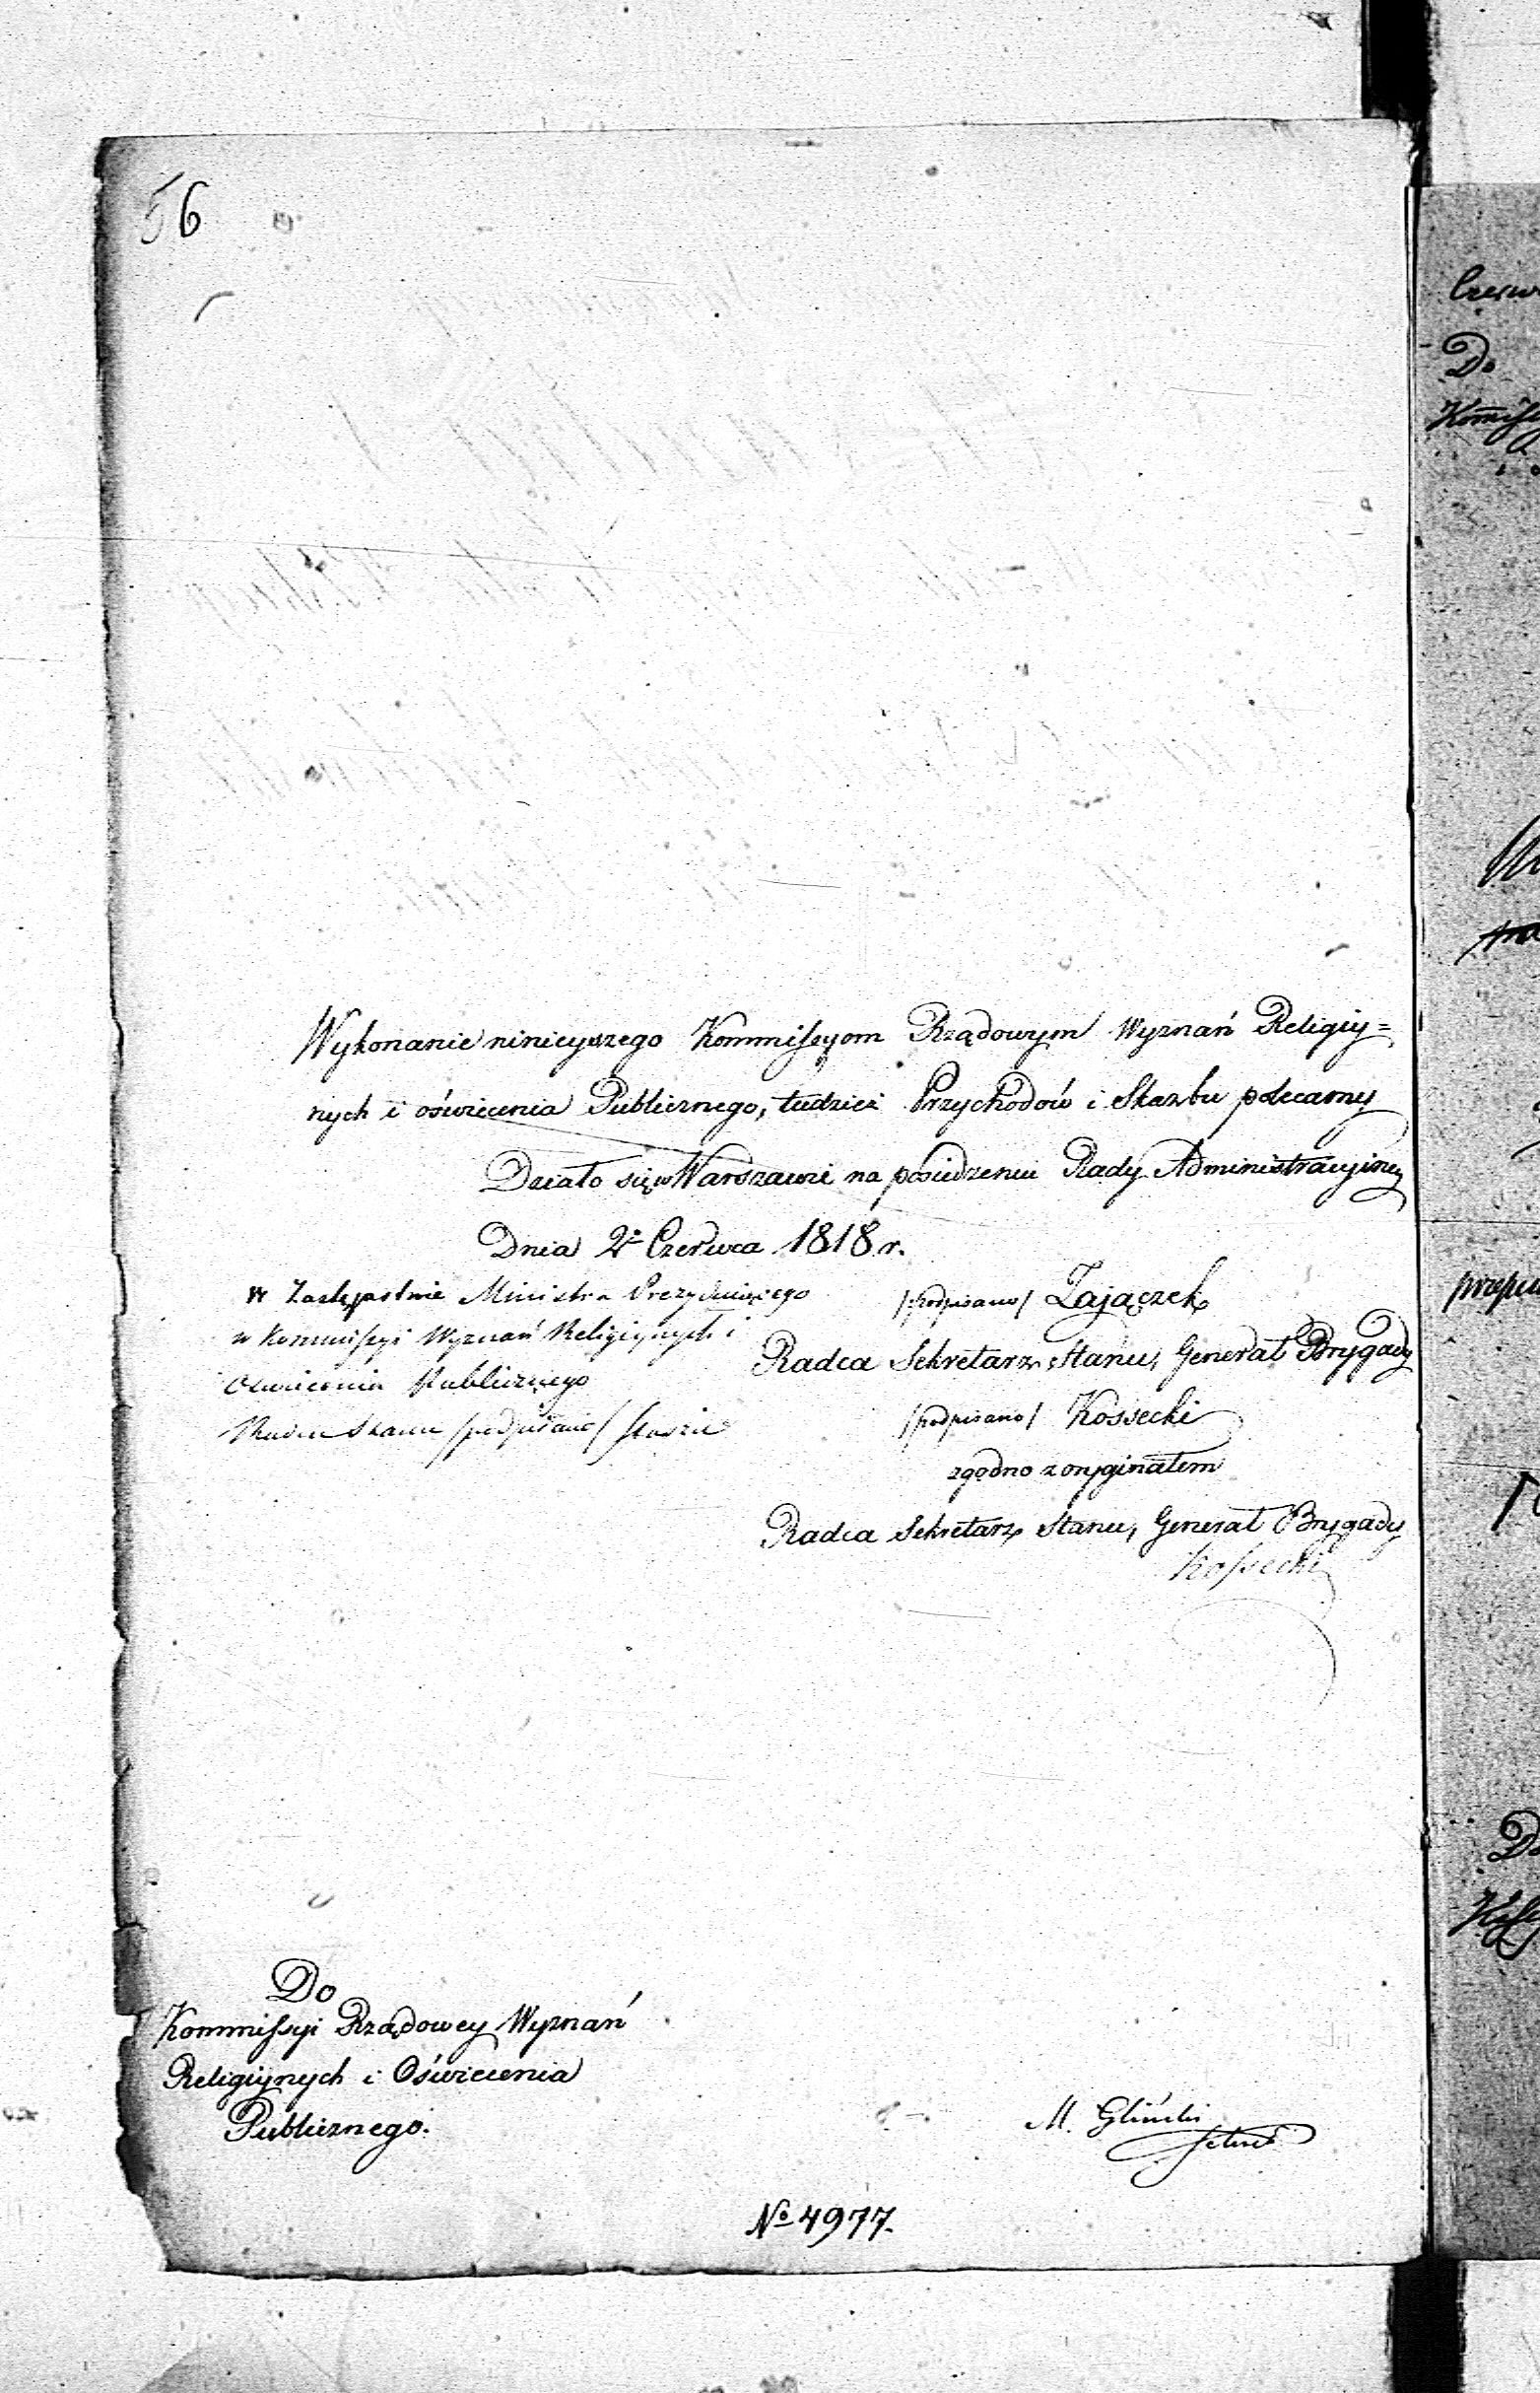 56
Wykonanie ninieyszego Kommissyom Rządowym Wyznań Religiy=
nych i oświecenia Publicznego, tudzież Przychodów i Skarbu polecamy
Działo się w Warszawie na posiedzeniu Rady Administracyiney
Dnia 2º Czerwca 1818 r.
w Zastępstwie Ministra Prezyduiącego
w Kommissyi Wyznań Religiynych i
Oświecenia Publicznego
Radca Stanu /podpisano/ Staszic
/:podpisano/ Zajączek
Radca Sekretarz Stanu, Generał Brygady
/podpisano/ Kossecki
zgodno z oryginałem
Radca Sekretarz Stanu, Generał Brygady
Kossecki
Do
Kommissyi Rządowey Wyznań
Religiynych i Oświecenia
Publicznego.
M. Gliński
No 4977.
Do